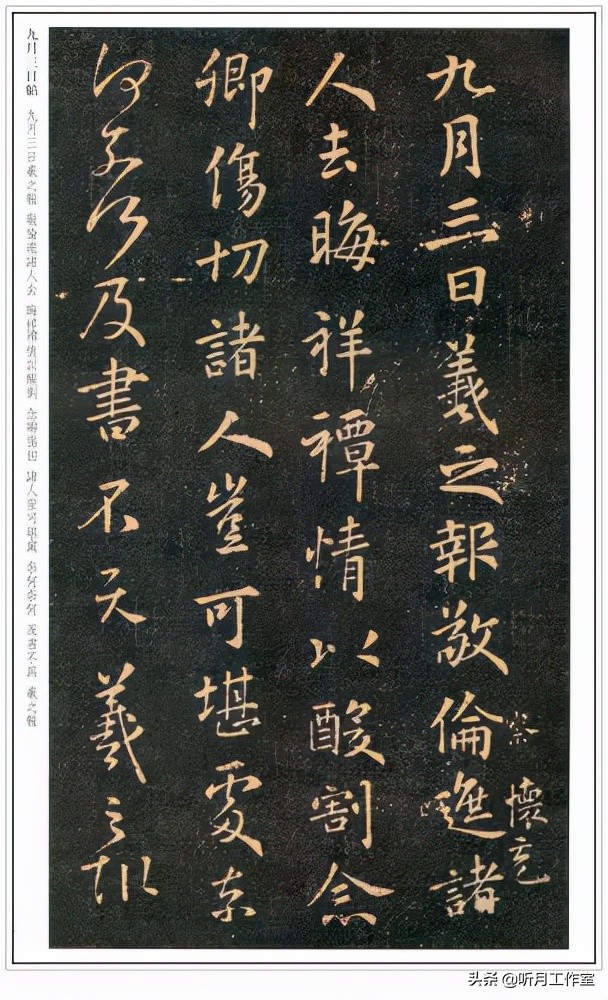 九月三日羲之報敬倫遮諸
察 懷充
人去晦祥禫情以酸割念
卿傷切諸人豈可堪處奈
何奈何及書不羲之報
九月三日帖 九月三日羲之報 敬倫遮諸人去 晦祥禫 情以酸割 念卿傷切 諸人豈可堪處 奈何奈何 及書不 羲之報
头条 @听月工作室